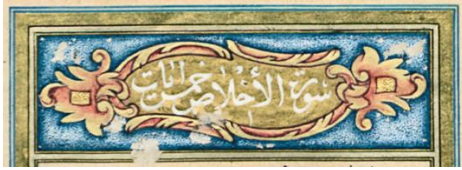 سورة الأخلاص خمس ايات